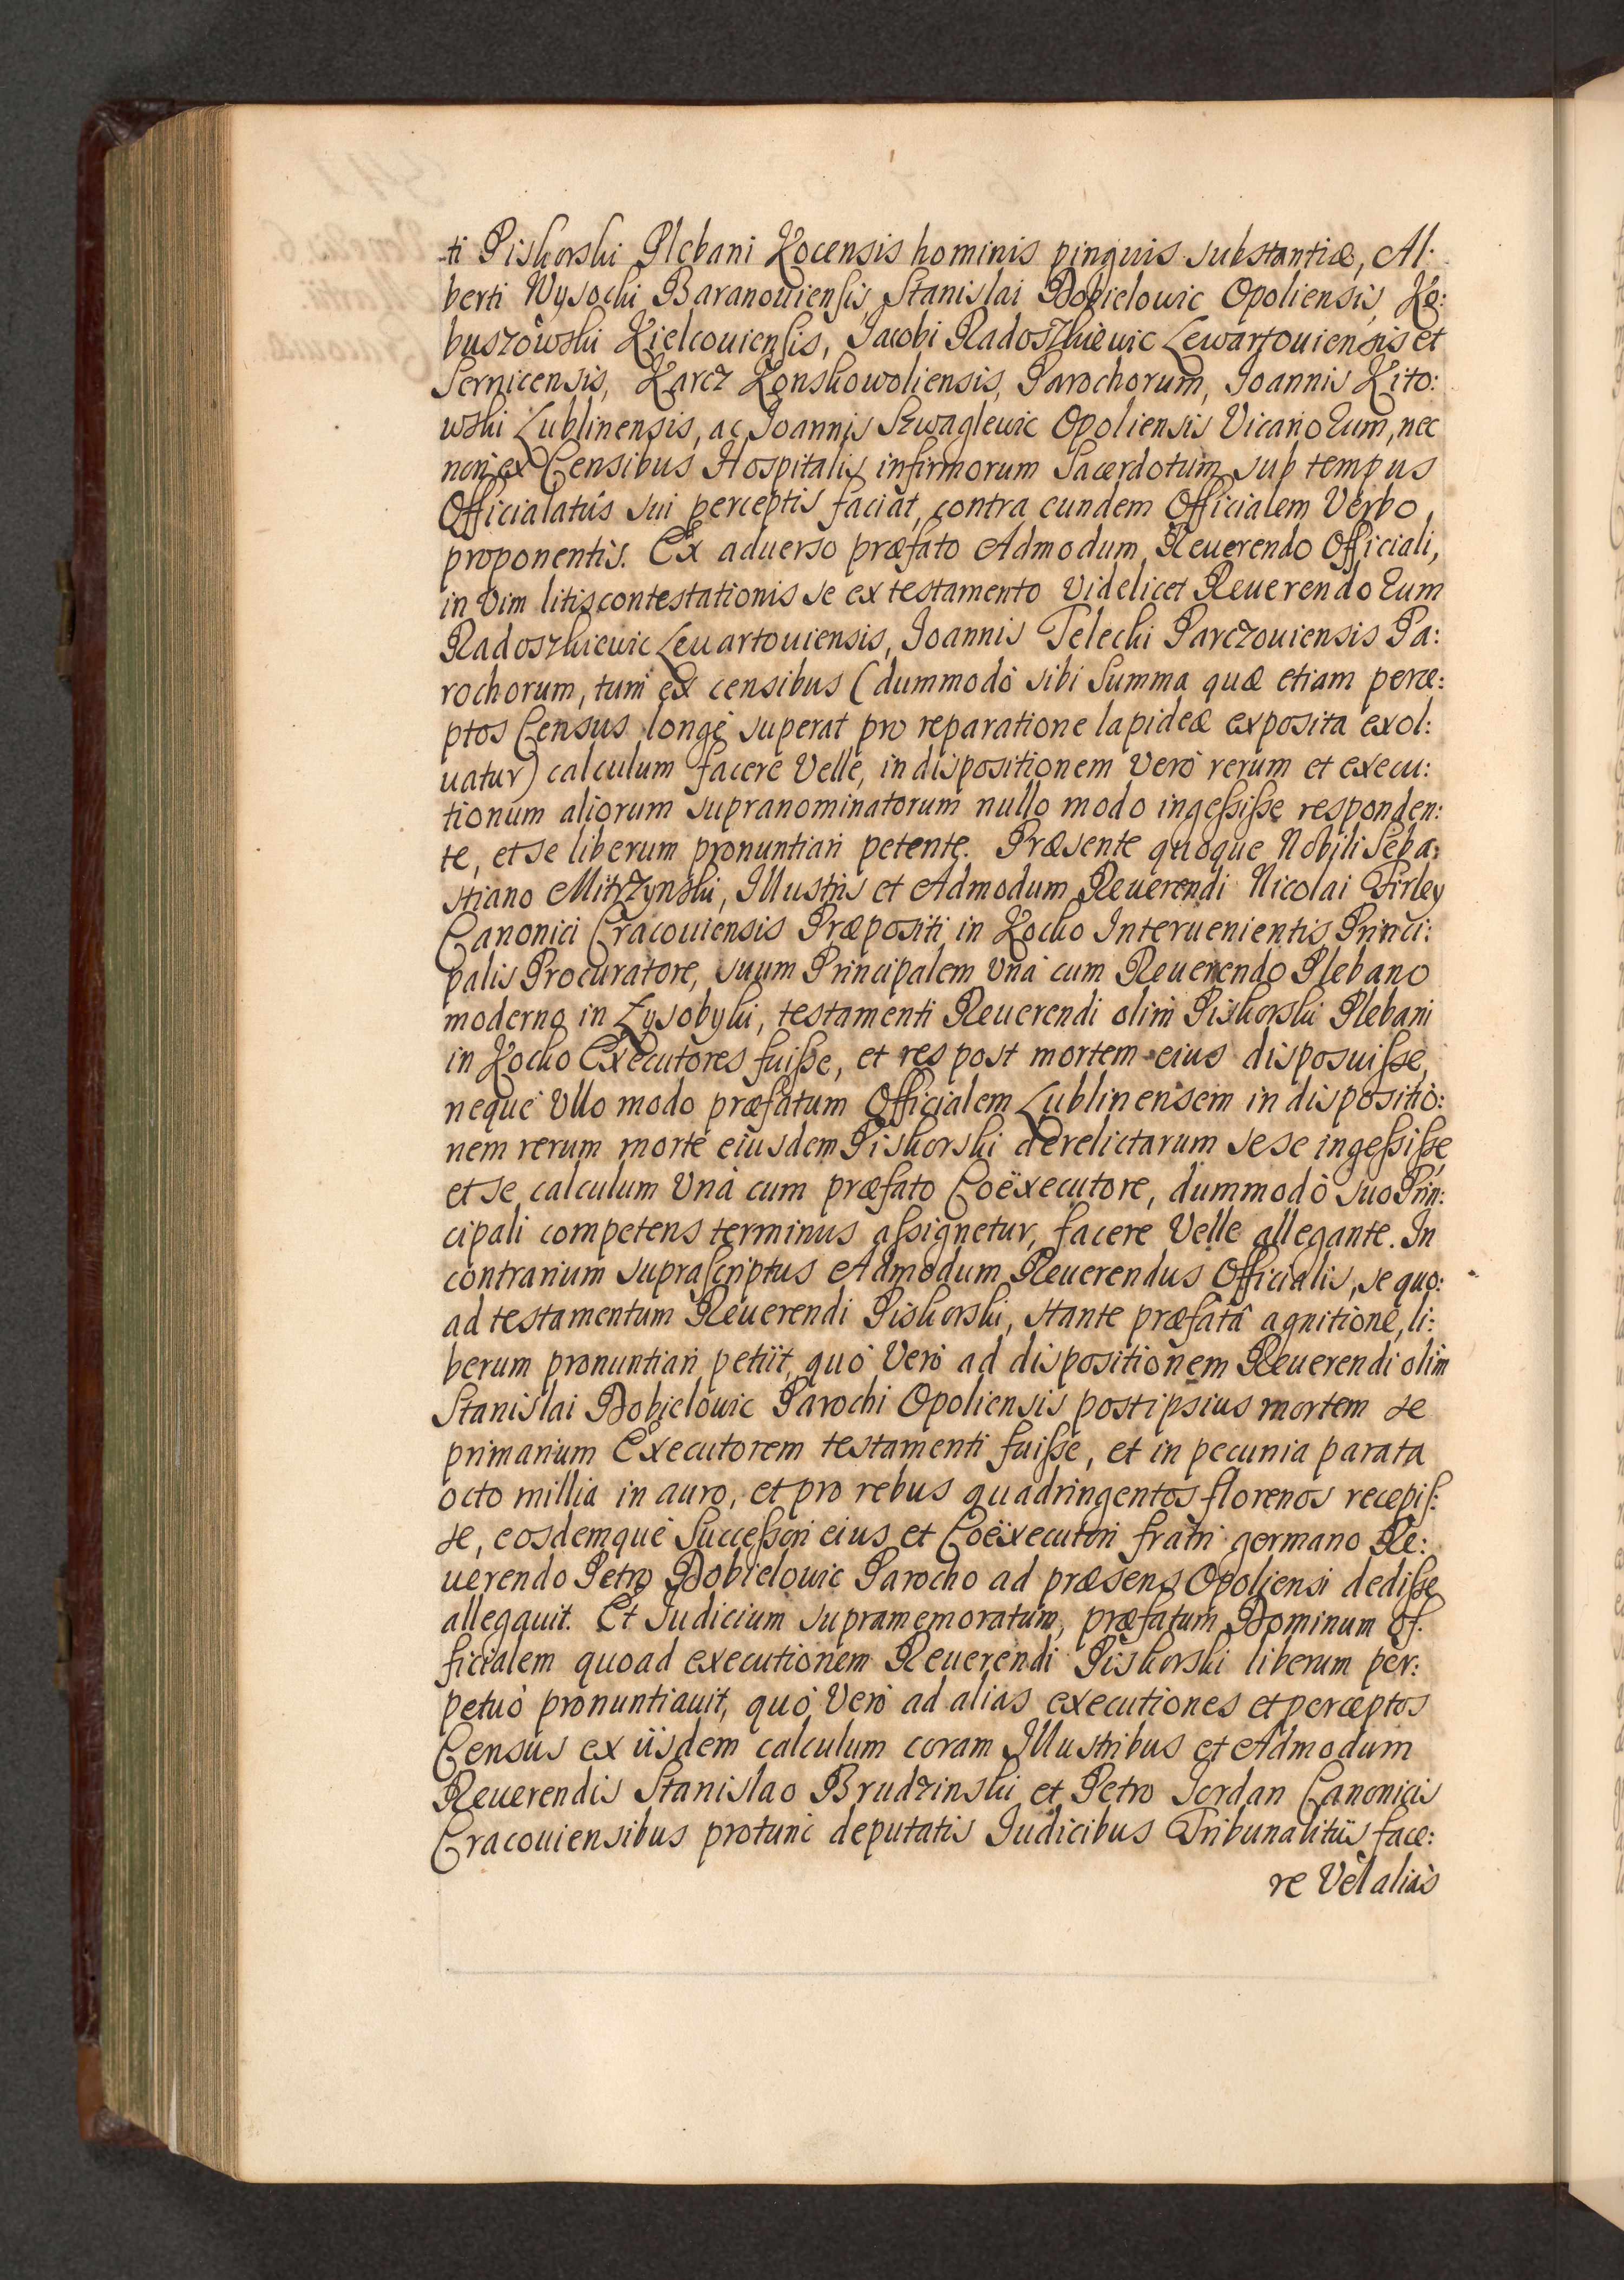 ti Piskorski Plebani Kocensis hominis pinguis substantiæ, Al:
berti Wysocki Baranouiensis, Stanislai Dobielowic Opoliensis, Ko:
buszowski Kielcouiensis, Jacobi Radoszkiewic Lewartouiensis et
Sernicensis, Karcz Konskowoliensis, Parochorum, Joannis Kito:
wski Lublinensis, ac Joannis Szwaglewic Opoliensis Vicariorum, nec
non ex Censibus Hospitalis infirmorum Sacerdotum sub tempus
Officialatûs sui perceptis faciat, contra eundem Officialem Verbo
proponentis. Ex aduerso præfato Admodum Reuerendo Officiali,
in Vim litiscontestationis se ex testamento Videlicet Reuerendorum
Radoszkiewic Leuartouiensis, Joannis Telecki Parczouiensis Pa:
rochorum, tum ex censibus (dummodò sibi Summa quæ etiam perce:
ptos Census longè superat pro reparatione lapideæ exposita exol:
uatur) calculum facere Velle, in dispositionem Verò rerum et execu:
tionum aliorum supranominatorum nullo modo ingessisse responden:
te, et se liberum pronuntiari petente. Præsente quoque Nobili Seba:
stiano Mitrzynski, Illustris et Admodum Reuerendi Nicolai Firley
Canonici Cracouiensis Præpositi in Kocko Interuenientis Princi:
palis Procuratore, suum Principalem Vnà cum Reuerendo Plebano
moderno in Lysobyki, testamenti Reuerendi olim Piskorski Plebani
in Kocko Executores fuisse, et res post mortem eius disposuisse,
neque Vllo modo præfatum Officialem Lublinensem in dispositio:
nem rerum morte eiusdem Piskorski derelictarum sese ingessisse
et se calculum Vnà cum præfato Coëxecutore, dummodò suo Prin:
cipali competens terminus assignetur, facere Velle allegante. In
contrarium suprascriptus Admodum Reuerendus Officialis, se quo:
ad testamentum Reuerendi Piskorski, stante præfatâ agnitione, li:
berum pronuntiari petiit, quò Verò ad dispositionem Reuerendi olim
Stanislai Dobielowic Parochi Opoliensis post ipsius mortem se
primarium Executorem testamenti fuisse, et in pecunia parata
octo millia in auro, et pro rebus quadringentos florenos recepis:
se, eosdemque Successori eius et Coëxecutori fratri germano Re:
uerendo Petro Dobielowic Parocho ad præsens Opoliensi dedisse
allegauit. Et Iudicium supramemoratum, præfatum Dominum Of:
ficialem quoad executionem Reuerendi Piskorski liberum per:
petuò pronuntiauit, quò Verò ad alias executiones et perceptos
Census ex iisdem calculum coram Illustribus et Admodum
Reuerendis Stanislao Brudzinski et Petro Jordan Canonicis
Cracouiensibus protunc deputatis Iudicibus Tribunalitiis face:
re Vel aliàs